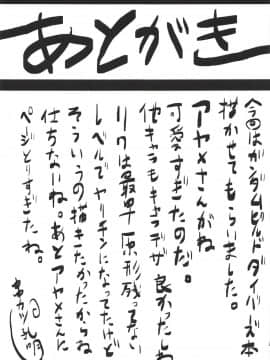 あとがき
今回はガンダムビルドダイバーズ本
描かせてもらいました。
アヤメさんがね
可愛すぎたのだ。
他キャラもキャラデザ良かったしね
リクは最早原形残ってない
レベルでヤリチンになってたけど
そういうの描きたかったからね
仕方ないね。あとアヤメさんに
ページとりすぎたね。